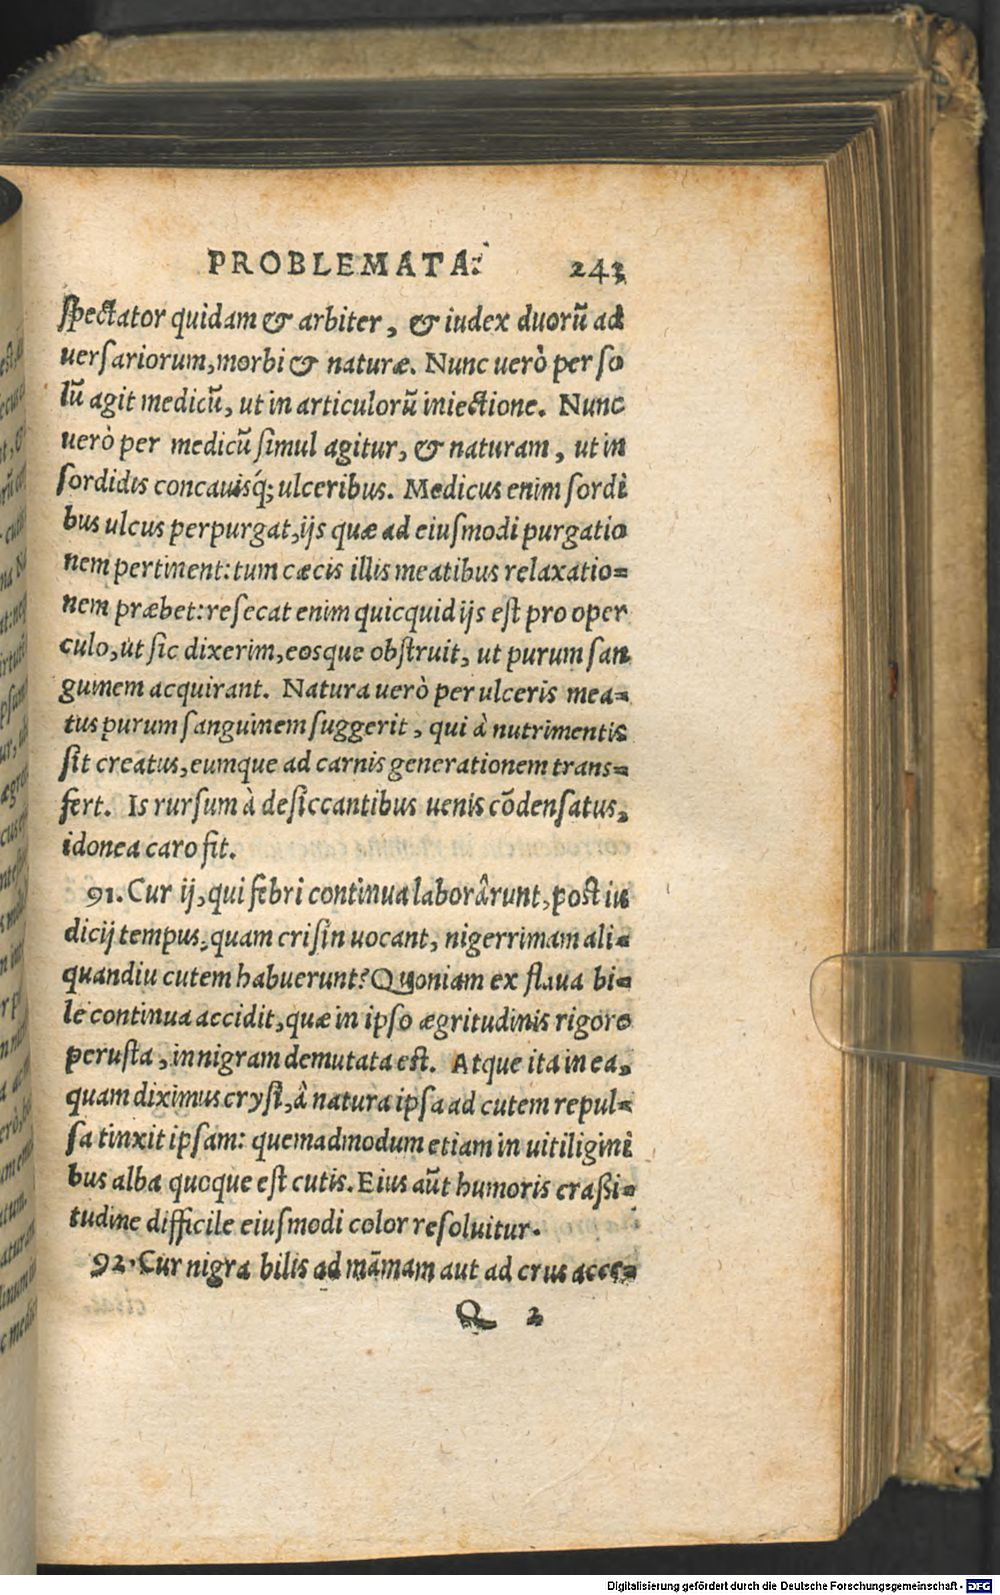 PROBLEMATA: 243
spectator quidam & arbiter, & iudex duorũ ad
uersariorum, morbi & naturæ. Nunc uerò per so
lũ agit medicũ, ut in articulorũ iniectione. Nunc
uerò per medicũ simul agitur, & naturam, ut in
sordidis concauisq́; ulceribus. Medicus enim sordi
bus ulcus perpurgat, ijs quæ ad eiusmodi purgatio
nem pertinent: tum cæcis illis meatibus relaxatio=
nem præbet: resecat enim quicquid ijs est pro oper
culo, ut sic dixerim, eosque obstruit, ut purum san
guinem acquirant. Natura uerò per ulceris mea=
tus purum sanguinem suggerit, qui à nutrimentis
sit creatus, eumque ad carnis generationem trans=
fert. Is rursum à desiccantibus uenis cõdensatus,
idonea caro fit.
91. Cur ij, qui febri continua laborârunt, post iu
dicij tempus, quam crisin uocant, nigerrimam ali=
quandiu cutem habuerunt? Quoniam ex flaua bi=
le continua accidit, quæ in ipso ægritudinis rigore
perusta, in nigram demutata est. Atque ita in ea,
quam diximus crysi, â natura ipsa ad cutem repul=
sa tinxit ipsam: quemadmodum etiam in uitiligini
bus alba quoque est cutis. Eius aũt humoris crassi=
tudine difficile eiusmodi color resoluitur.
92. Cur nigra bilis ad mãmam aut ad crus acce=
Q 2
Digitalisierung gefördert durch die Deutsche Forschungsgemeinschaft - DFG